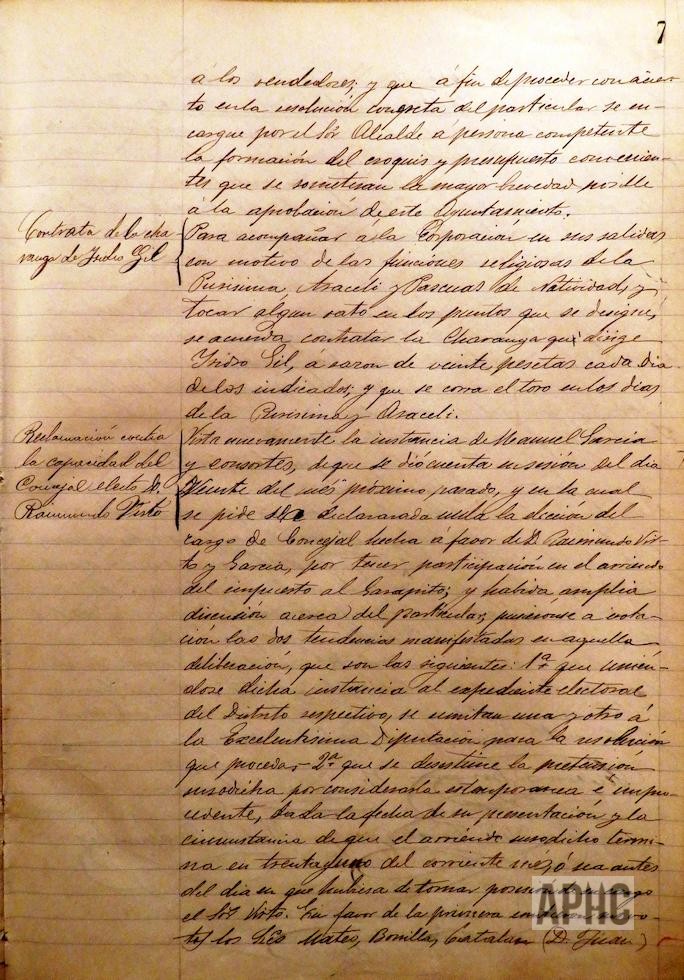 7
á los vendedores; y que á fin de proceder con acier-
to en la resolución concreta del particular se en-
cargue por el Sor Alcalde á persona competente
la formación del croquis y presupuesto convenien-
tes que se someteran la mayor brevedad posible
á la aprobación de este Ayuntamiento.
Contrata de la cha-
ranga de Isidro Gil
Para acompañar á la Corporación en sus salidas
con motivo de las funciones religiosas de la
Purisima, Araceli y Pascuas de Natividad, y
tocar algun rato en los puntos que se designe,
se acuerda contratar la Charanga que dirige
Isidro Gil, á razon de veinte pesetas cada dia
de los indicados; y que se corra el toro en los dias
de la Purisima y Araceli.
Reclamación contra
la capacidad del
Concejal electo D.
Raimundo Visto
Vista nuevamente la instancia de Manuel Garcia
y consortes, de que se dió cuenta en sesión del dia
Veinte del més próximo pasado, y en la cual
se pide sea declararada nula la elección del
cargo de Concejal hecha á favor de D. Raimundo Vis-
to y Garcia, por tener participación en el arriendo
del impuesto al Garapito; y habida amplia
discusión acerca del particular, pusieronse a vota-
ción las dos tendencias manifestadas en aquella
deliberación, que son las siguientes: 1ª que unien-
dose dicha instancia al expediente electoral
del Distrito respectivo, se remitan una y otro á
la Excelentisima Diputación para la resolución
que proceda,- 2ª que se desestime la pretensión
susodicha por considerarla estemporanea é impro-
cedente, dada la fecha de su presentación y la
circunstancia de que el arriendo susodicho termi-
na en treinta y uno del corriente més, ó sea antes
del dia en que hubiera de tomar posesión
el Sor Visto. En favor de la primera
los Sres Mateo, Bonilla, Catalan (D. Juan)
APHC